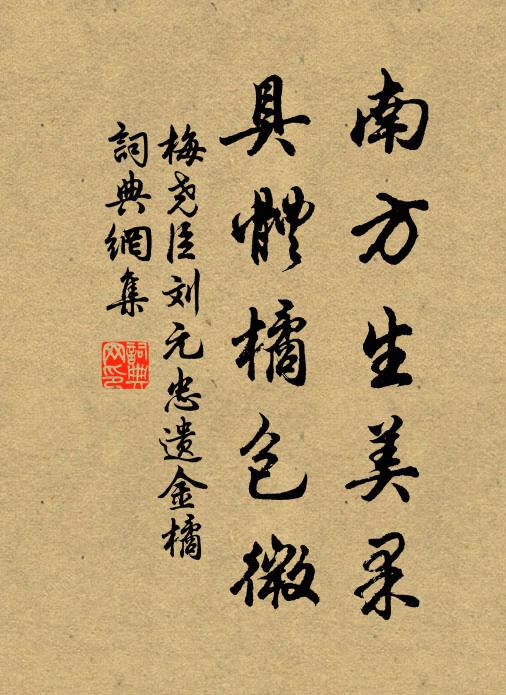 南方生美果
具體橘包微
梅尧臣刘元忠遗金橘
詞典網集
詞典
网印